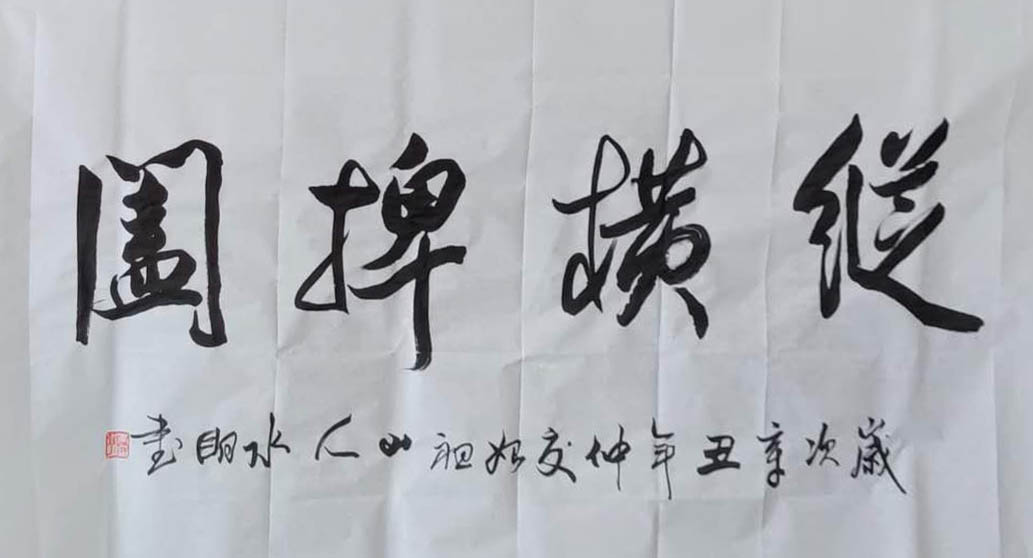 縱橫捭闔
歲次辛丑年仲夏始祖山人水明書